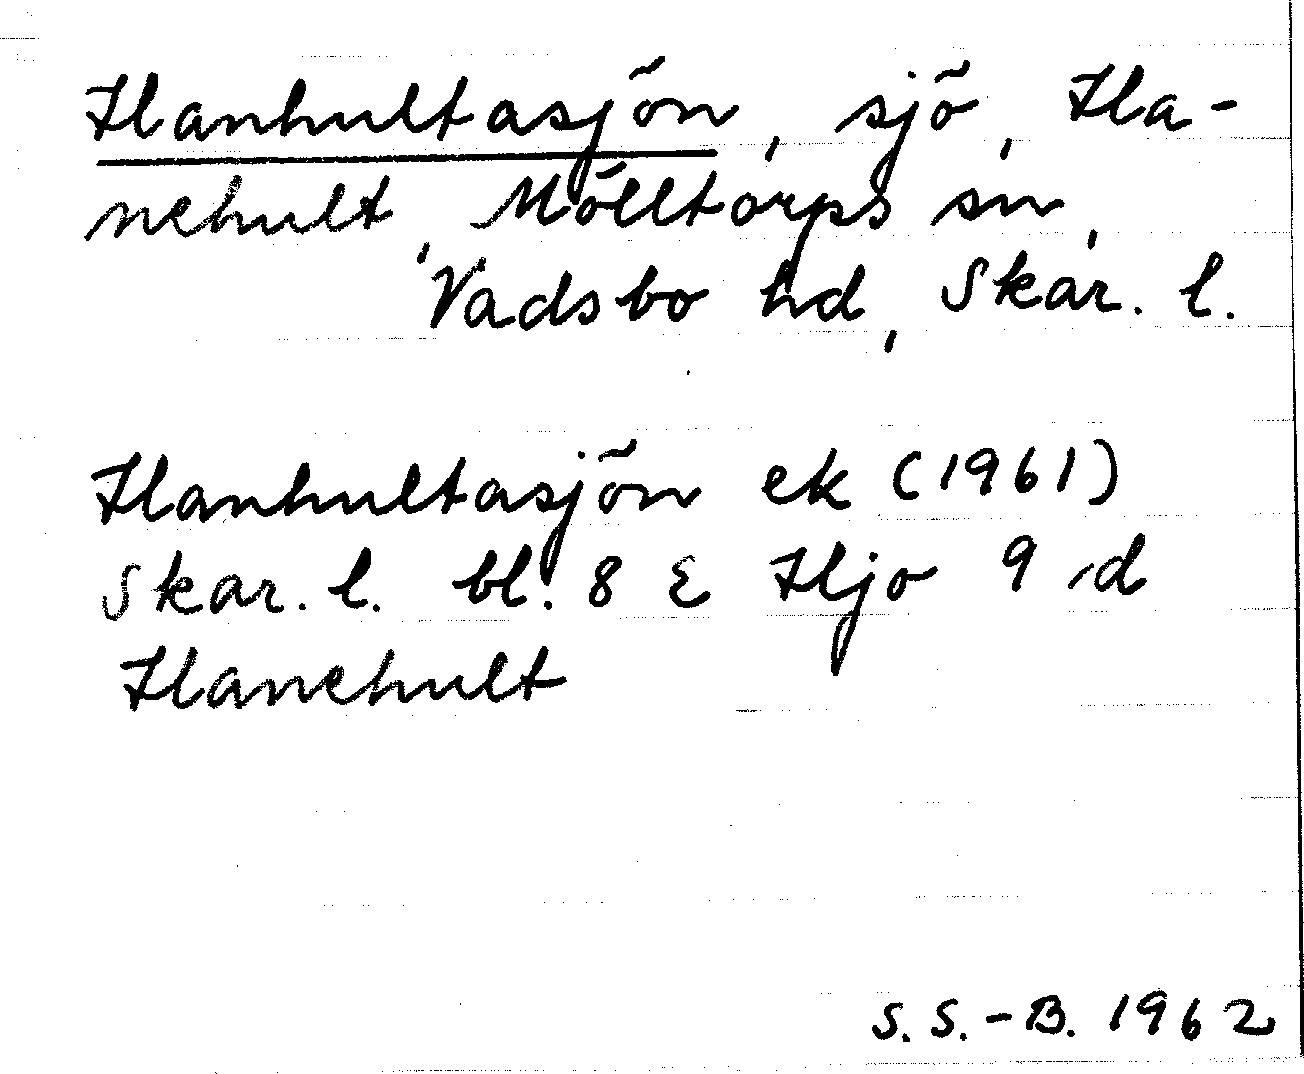 Hanhultasjön, sjö, Ha-
nehult, Mölltorps sn,
Vadsbo hd, Skar. l.
Hanhultasjön ek (1961)
Skar. l. bl. 8 E Hjo 9 d
Hanehult
S. S.-B. 1962